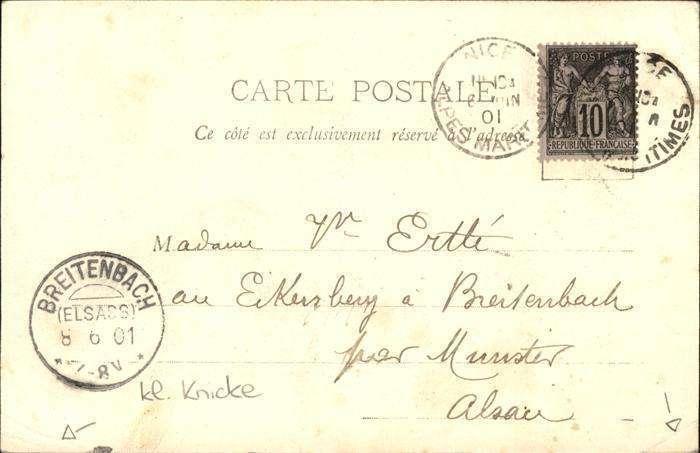 NICE
6 JUIN
01
ALPES MARITIMES
POSTES
10
REPUBLIQUE FRANÇAISE
CARTE POSTALE
Ce côté est exclusivement réservé à l'adresse
Madame Vve Ertlé
au Eikerzberg à Breitenbach
par Munster
Alsace
BREITENBACH
(ELSASS)
8 6 01
7-8V
kl. Knicke